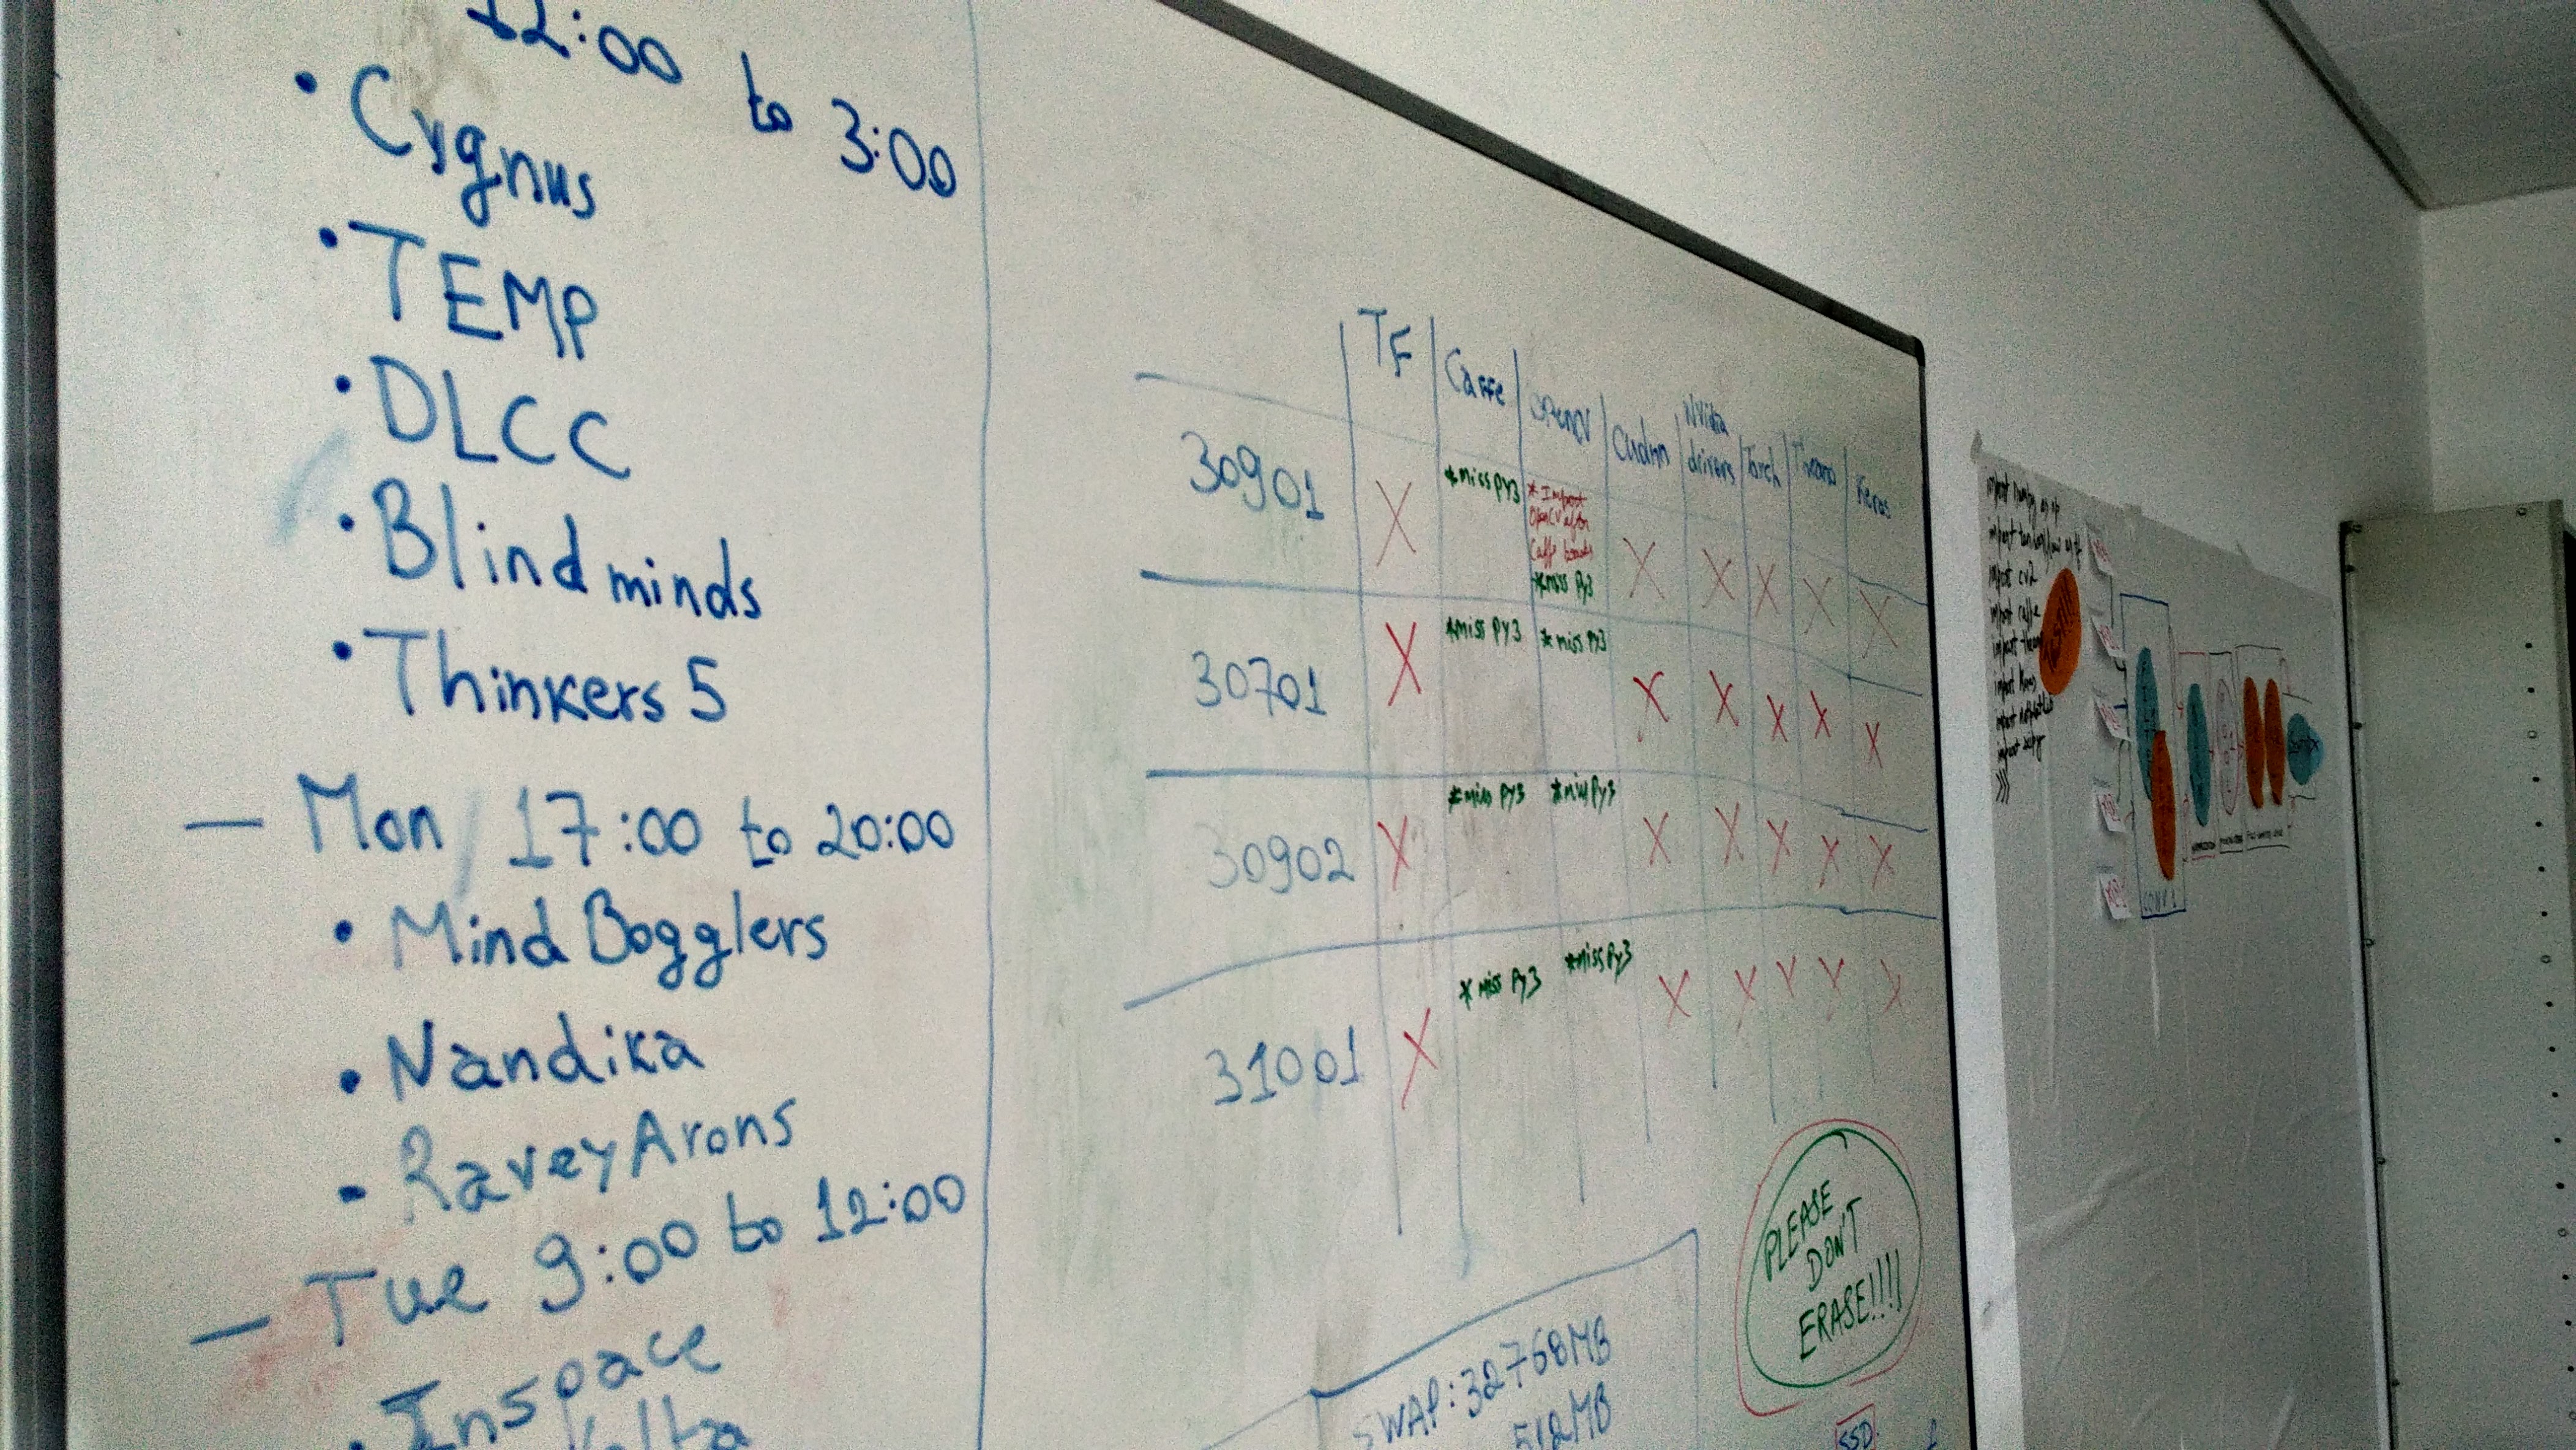 12:00 to 3:00
• Cygnus
• TEMP
• DLCC
• Blind minds
• Thinkers 5
— Mon 17:00 to 20:00
• Mind Bogglers
• Nandika
• RaveyArons
— Tue 9:00 to 12:00
• Inspace
TF Caffe OpenCV Cudnn Nvidia drivers Torch Theano Keras
30901 X *miss py3 * Import OpenCV after Caffe *miss Py3 X X X X X
30701 X *miss py3 *miss py3 X X X X X
30902 X *miss py3 *miss Py3 X X X X X
31001 X *miss Py3 *miss Py3 X X X X X
PLEASE
DON'T
ERASE!!!!
SWAP: 32768MB
512MB
SSD
import numpy as np
import tensorflow as tf
import cv2
import caffe
import
import Keras
import
import scipy
>>>
CONV 1